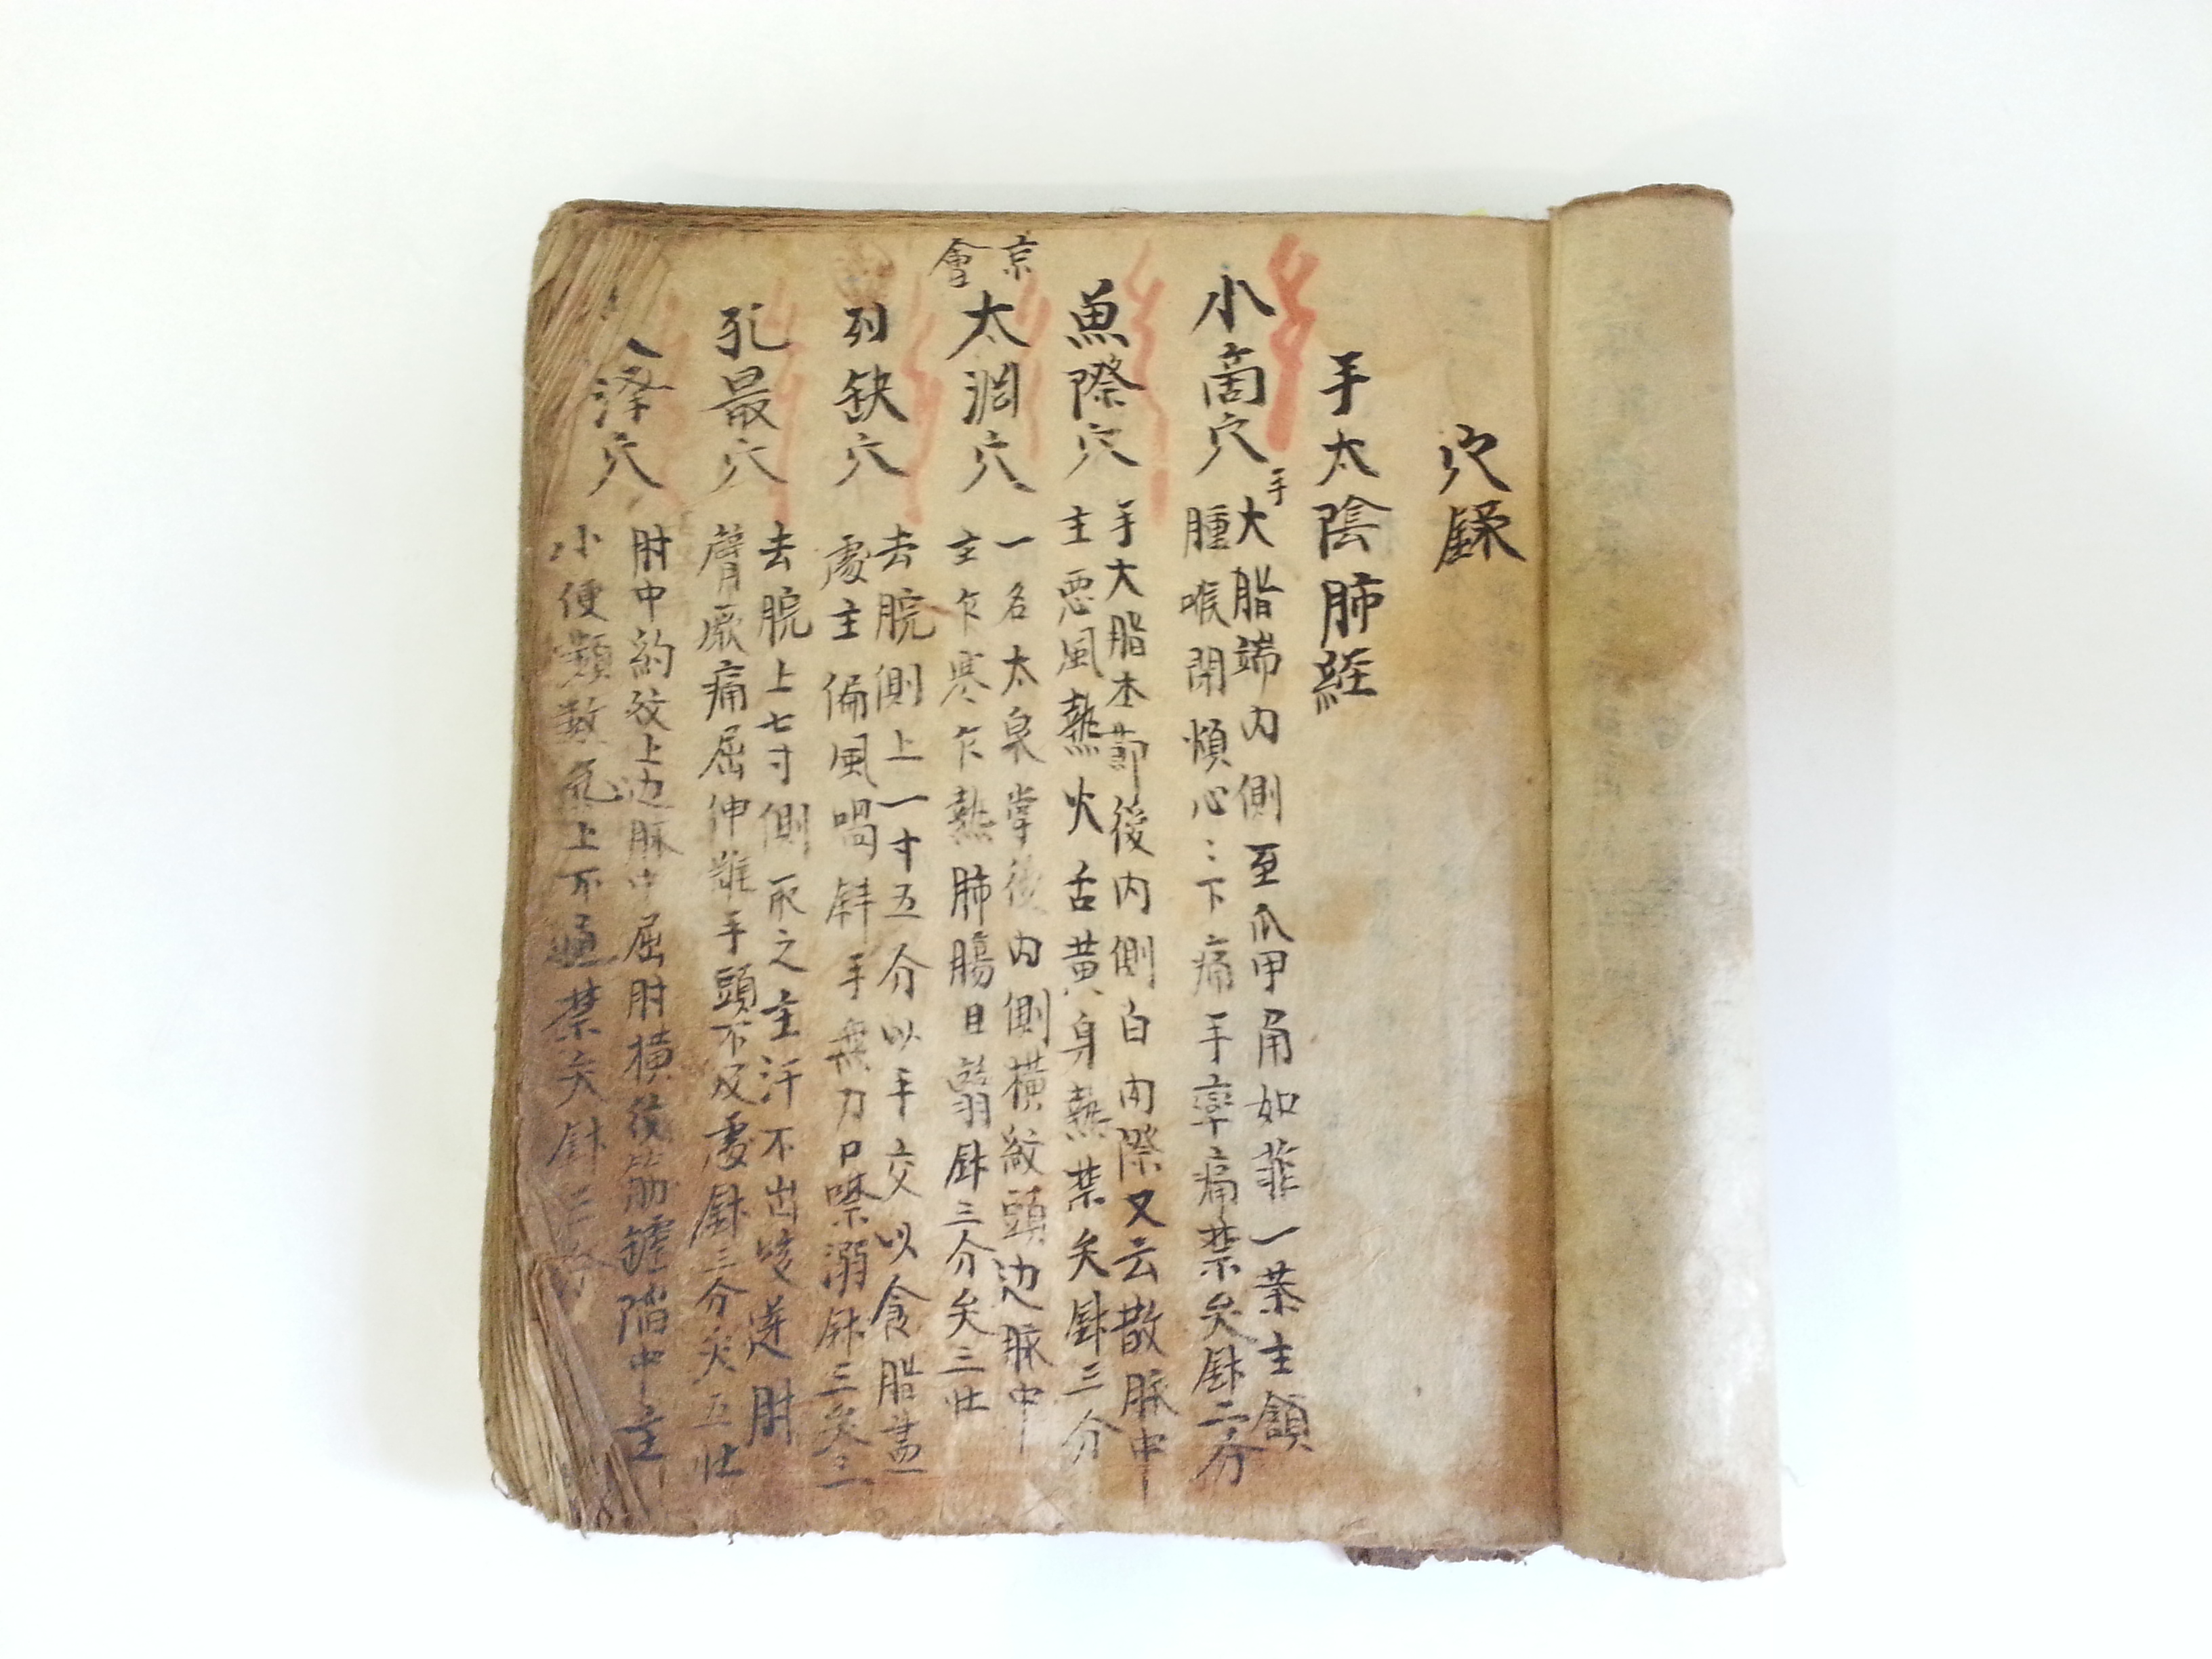 穴録
手太陰肺經
小啇穴
手
大脂端内側至爪甲角如菲一葉主頷
腫喉閉煩心〻下痛手攣痛禁灸針二分
魚際穴
手大脂本節後内側白肉際又云散脉中
主惡風熱火舌黃身熱禁灸針三分
京
會
太渊穴
一名太泉掌後内側横紋頭边脉中
主乍寒乍熱肺腸目翳針三分灸三壮
列缺穴
去腕側上一寸五分以手交以食脂盡
處主偏風喎斜手無力口噤溺針三灸三
孔最穴
去腕上七寸側取之主汗不出咳逆肘
臂厥痛屈伸難手頭不及處針三分灸五壮
澤穴
肘中約紋上边脉中屈肘横後筋罅陷中主
小便數氣上不通禁灸針三分